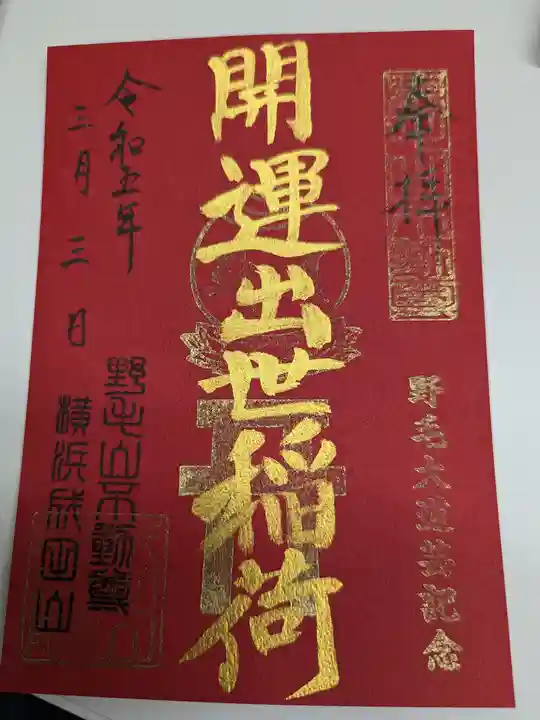 奉拝
野毛大道芸記念
開運出世稲荷
令和五年
三月三日
野毛山不動尊
横浜成田山